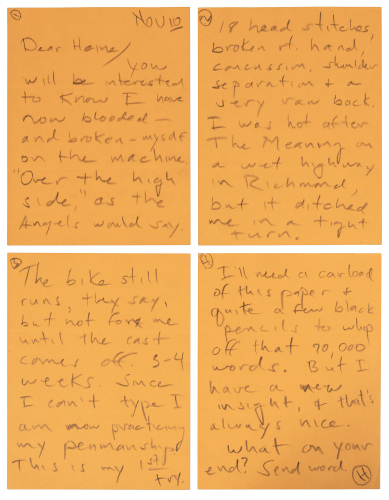 1
Nov 10
Dear Heine,
You
will be interested
to know I have
now blooded —
and broken — myself
on the machine
"Over the high
side," as the
Angels would say.
2
18 head stitches,
broken rt. hand,
concussion, shoulder
separation & a
very raw back.
I was hot after
The Meaning on
a wet highway
in Richmond,
but it ditched
me in a tight
turn.
3
The bike still
runs, they say,
but not for me
until the cast
comes off 3-4
weeks. Since
I can't type I
am now practicing
my penmanship
This is my 1st
try.
4
I'll need a carload
of this paper &
quite a few black
pencils to whip
off that 70,000
words. But I
have a new
insight, & that's
always nice.
What on your
end? Send word.
H